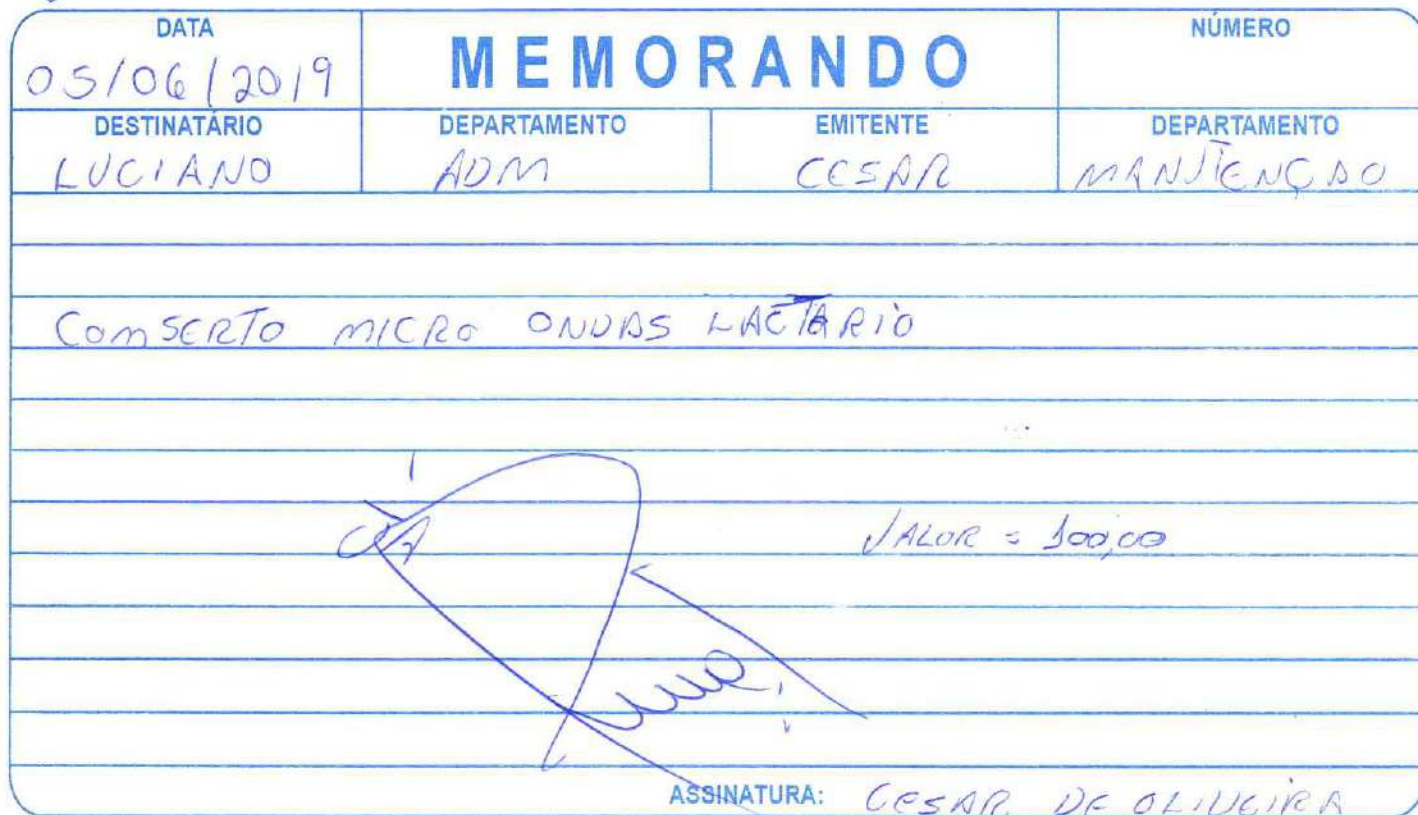 DATA
05/06/2019
MEMORANDO
NÚMERO
DESTINATÁRIO
LUCIANO
DEPARTAMENTO
ADM
EMITENTE
CESAR
DEPARTAMENTO
MANUTENÇÃO
COMSERTO MICRO ONDAS LACTARIO
VALOR = 100,00
ASSINATURA: CESAR DE OLIVEIRA